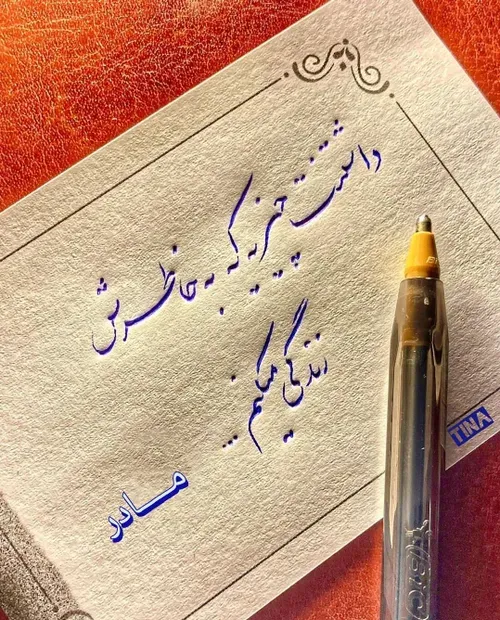 داشتنت چیزیه که به خاطرش
زندگی میکنم ...
مادر
TINA